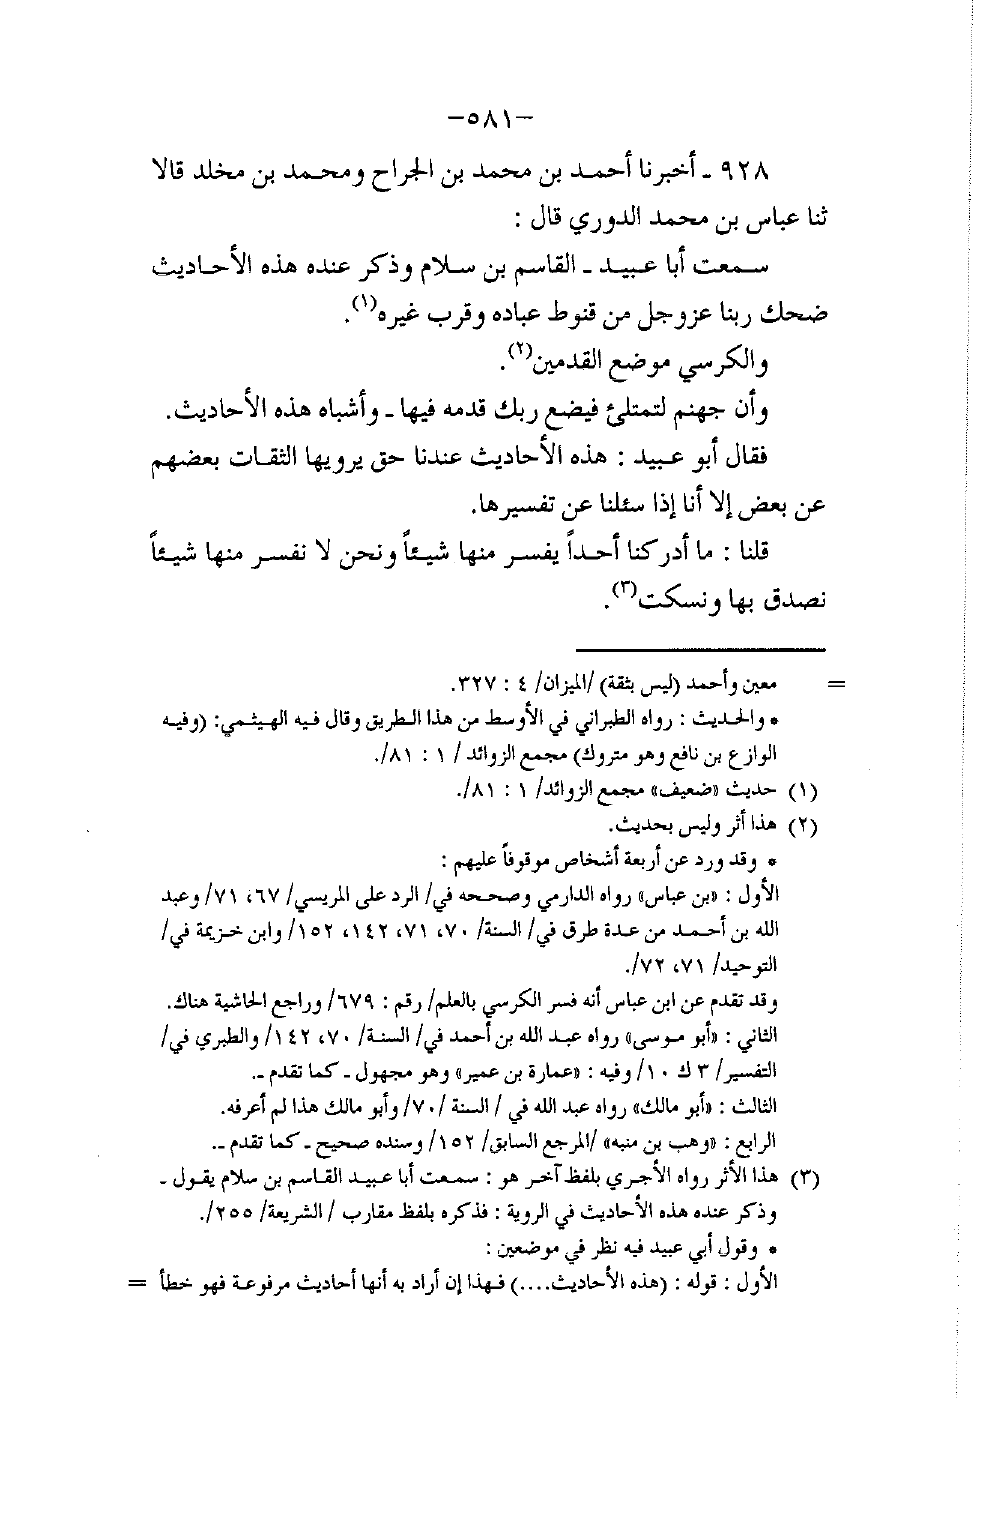 -٥٨١-
٩٢٨ ـ أخبرنا أحمد بن محمد بن الجراح ومحمد بن مخلد قالا
ثنا عباس بن محمد الدوري قال :
سمعت أبا عبيد ـ القاسم بن سلام وذكر عنده هذه الأحاديث
ضحك ربنا عزوجل من قنوط عباده وقرب غيره(١).
والكرسي موضع القدمين(٢).
وأن جهنم لتمتلئ فيضع ربك قدمه فيها ـ وأشباه هذه الأحاديث.
فقال أبو عبيد : هذه الأحاديث عندنا حق يرويها الثقات بعضهم
عن بعض إلا أنا إذا سئلنا عن تفسيرها.
قلنا : ما أدركنا أحداً يفسر منها شيئاً ونحن لا نفسر منها شيئاً
نصدق بها ونسكت(٣).
= معين وأحمد (ليس بثقة) /الميزان/ ٤ : ٣٢٧.
• والحديث : رواه الطبراني في الأوسط من هذا الطريق وقال فيه الهيثمي: (وفيه
الوازع بن نافع وهو متروك) مجمع الزوائد / ١ : ٨١/.
(١) حديث «ضعيف» مجمع الزوائد/ ١ : ٨١/.
(٢) هذا أثر وليس بحديث.
• وقد ورد عن أربعة أشخاص موقوفاً عليهم :
الأول : «بن عباس» رواه الدارمي وصححه في/ الرد على المريسي/ ٦٧، ٧١/ وعبد
الله بن أحمد من عدة طرق في/ السنة/ ٧٠، ٧١، ١٤٢، ١٥٢/ وابن خزيمة في/
التوحيد/ ٧١، ٧٢/.
وقد تقدم عن ابن عباس أنه فسر الكرسي بالعلم/ رقم : ٦٧٩/ وراجع الحاشية هناك.
الثاني : «أبو موسى» رواه عبد الله بن أحمد في/ السنة/ ٧٠، ١٤٢/ والطبري في/
التفسير/ ٣ ك ١٠/ وفيه : «عمارة بن عمير» وهو مجهول ـ كما تقدم ـ.
الثالث : «أبو مالك» رواه عبد الله في / السنة /٧٠/ وأبو مالك هذا لم أعرفه.
الرابع : «وهب بن منبه» /المرجع السابق/ ١٥٢/ وسنده صحيح ـ كما تقدم ـ.
(٣) هذا الأثر رواه الأجري بلفظ آخر هو : سمعت أبا عبيد القاسم بن سلام يقول ـ
وذكر عنده هذه الأحاديث في الروية : فذكره بلفظ مقارب / الشريعة/ ٢٥٥/.
• وقول أبي عبيد فيه نظر في موضعين :
الأول : قوله : (هذه الأحاديث....) فهذا إن أراد به أنها أحاديث مرفوعة فهو خطأ =